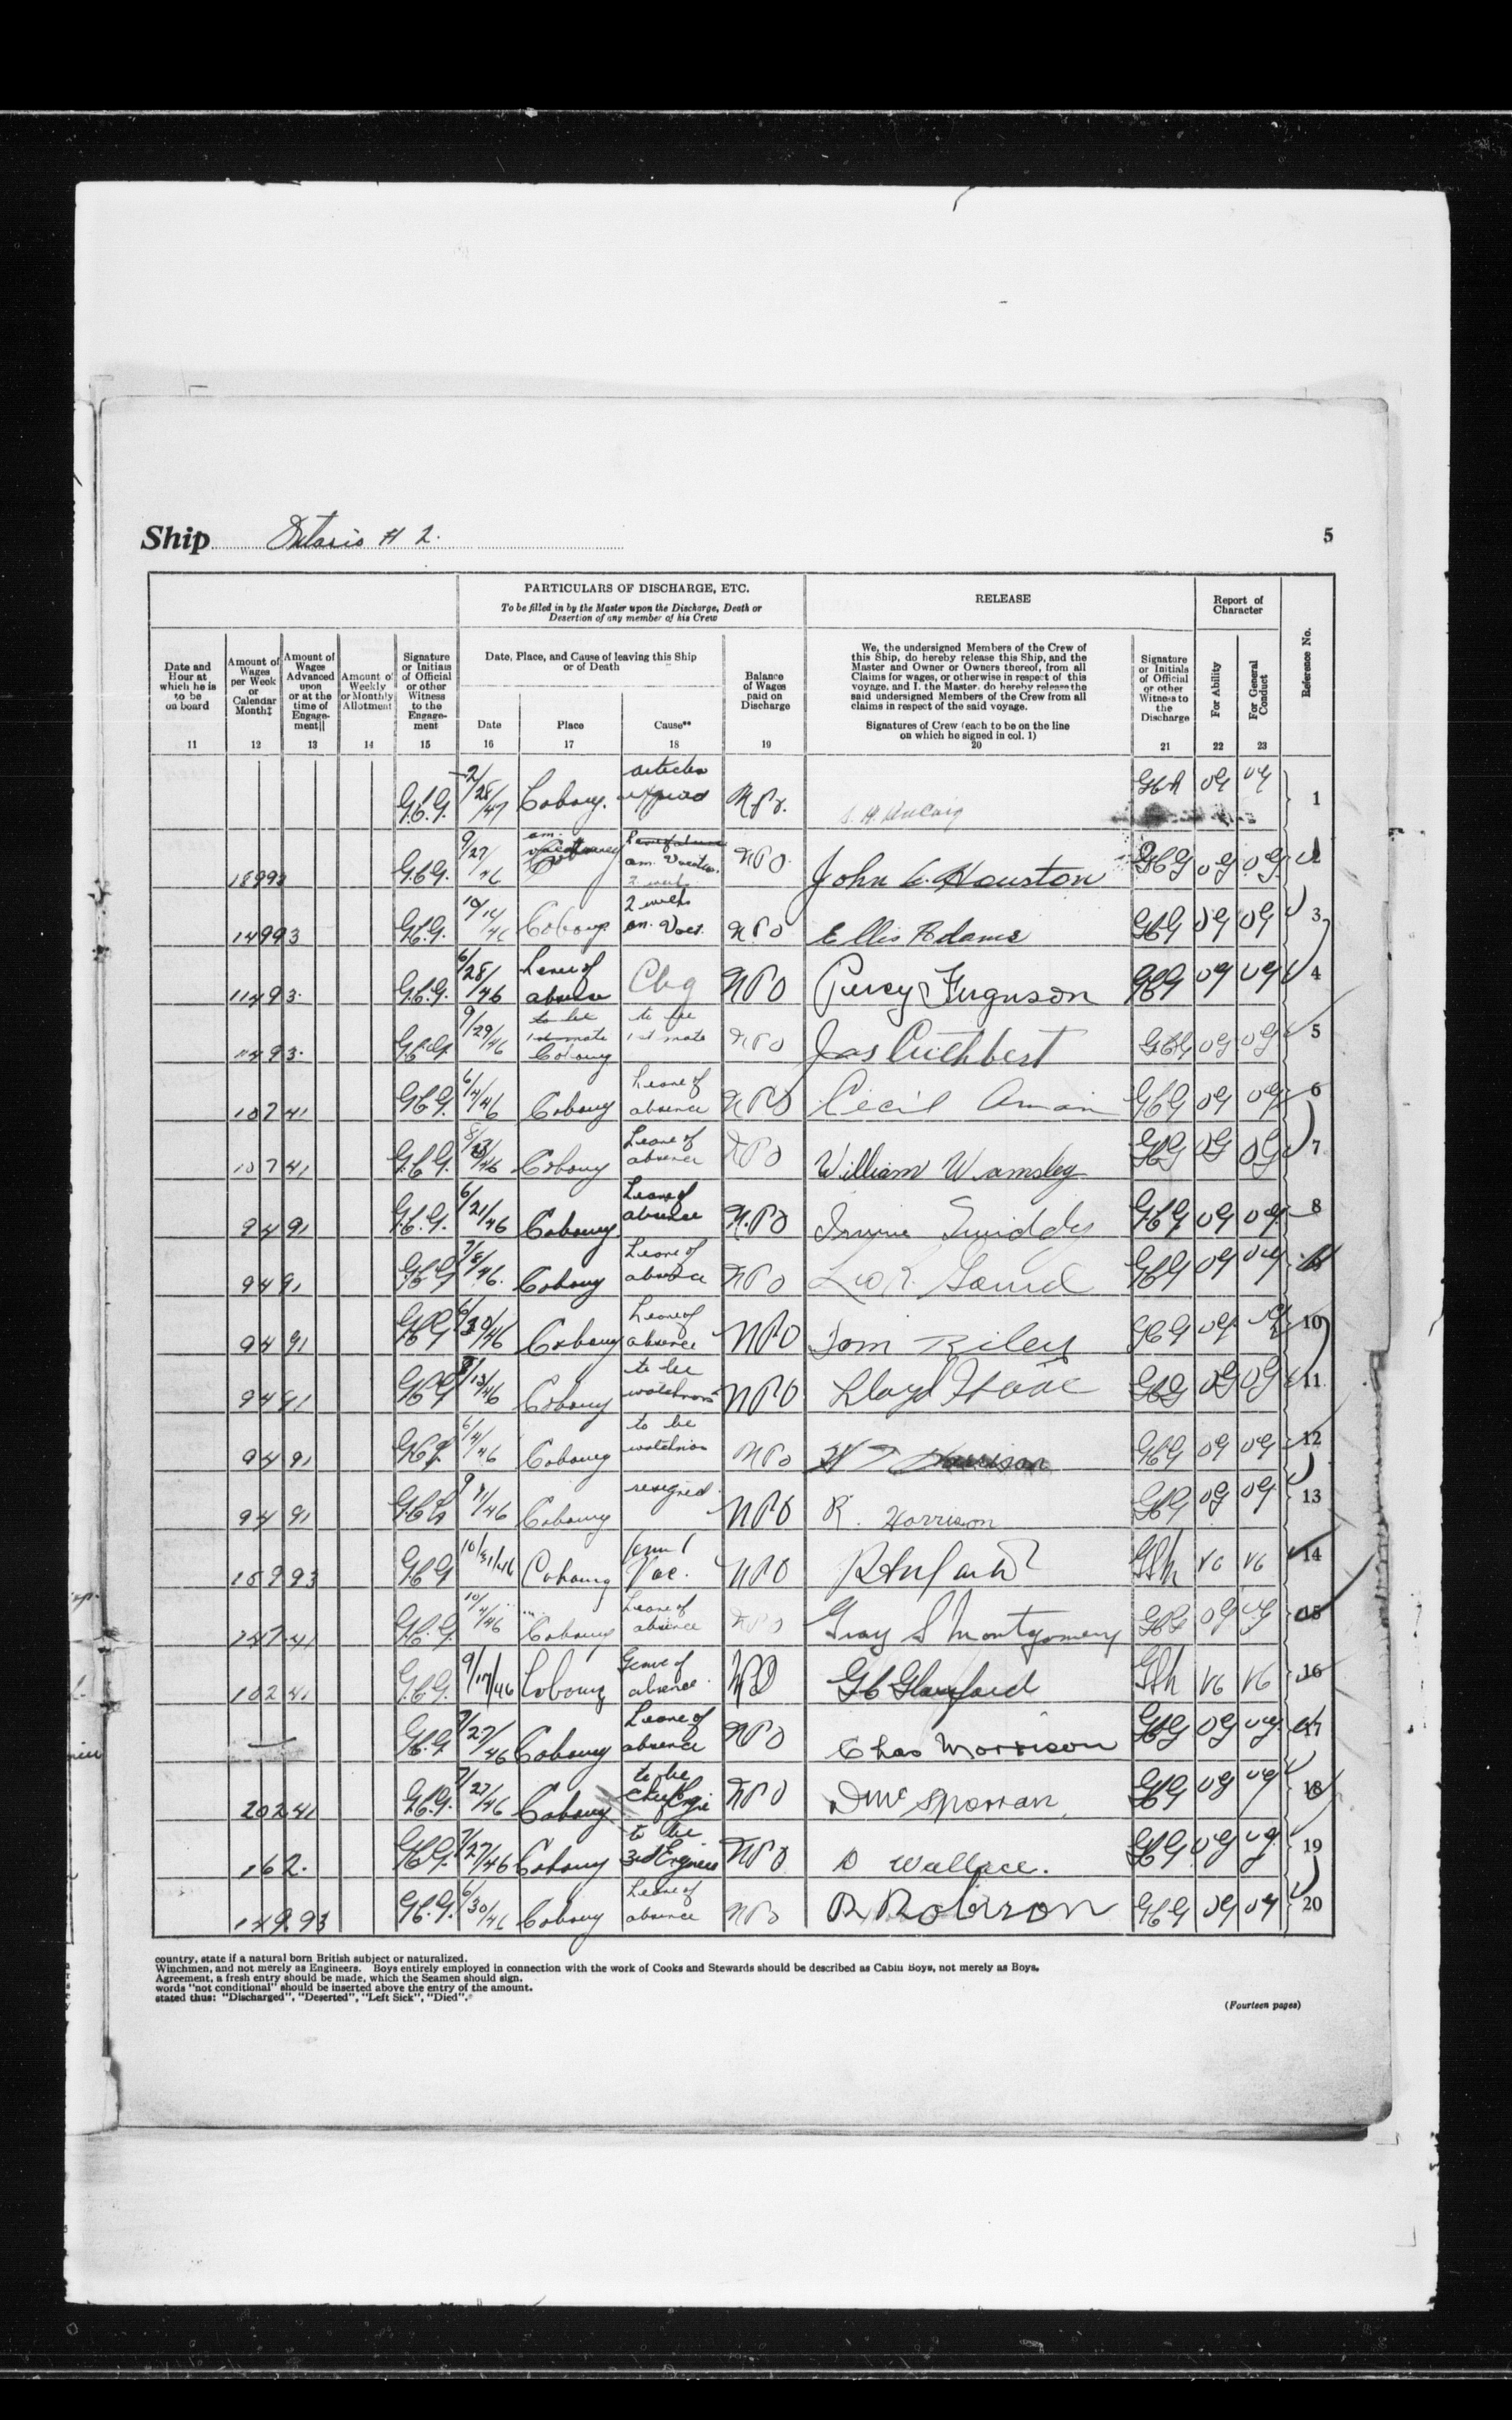 Ship Ontario # 2.
5
PARTICULARS OF DISCHARGE, ETC.
To be filled in by the Master upon the Discharge, Death or
Desertion of any member of his Crew
RELEASE
Report of
Character
Reference No.
Date and
Hour at
which he is
to be
on board
11
Amount of
Wages
per Week
or
Calendar
Month‡
12
Amount of
Wages
Advanced
upon
or at the
time of
Engage-
ment||
13
Amount of
Weekly
or Monthly
Allotment
14
Signature
or Initials
of Official
or other
Witness
to the
Engage-
ment
15
Date, Place, and Cause of leaving this Ship
or of Death
Date
16
Place
17
Cause**
18
Balance
of Wages
paid on
Discharge
19
We, the undersigned Members of the Crew of
this Ship, do hereby release this Ship, and the
Master and Owner or Owners thereof, from all
Claims for wages, or otherwise in respect of this
voyage, and I, the Master, do hereby release the
said undersigned Members of the Crew from all
claims in respect of the said voyage.
Signatures of Crew (each to be on the line
on which he signed in col. 1)
20
Signature
or Initials
of Official
or other
Witness to
the
Discharge
21
For Ability
22
For General
Conduct
23
G.C.G. 2/28/47 Cobourg. articles expired 1
189 93 G.C.G. 9/27/46 an. Vacation 2 weeks NPO John C. Houston GCG VG VG 2
149 93 G.C.G. 10/14/46 Cobourg 2 weeks an. Vact. NPO Ellis Adams GCG VG VG 3
114 93 G.C.G. 6/28/46 Leave of absence Cbg NPO Percy Ferguson GCG VG VG 4
114 93 G.C.G. 9/29/46 to be 1st mate Cobourg to be 1st mate NPO Jas Cuthbert GCG VG VG 5
107 41 G.C.G. 6/4/46 Cobourg Leave of absence NPO Cecil Amain GCG VG VG 6
107 41 G.C.G. 8/13/46 Cobourg Leave of absence NPO William Wamsley GCG VG VG 7
94 91 G.C.G. 6/21/46 Cobourg Leave of absence N.PO GCG VG VG 8
94 91 GCG 7/8/46. Cobourg Leave of absence NPO GCG VG VG
94 91 GCG 6/30/46 Cobourg Leave of absence NPO Tom Riley GCG VG VG 10
94 91 GCG 8/13/46 Cobourg to be watchman NPO Lloyd Isaac GCG VG VG 11
94 91 GCG 6/4/46 Cobourg to be watchman NPO W T Harrison GCG VG VG 12
94 91 GCG 9/21/46 Cobourg resigned. NPO R. Harrison GCG VG VG 13
189 93 GCG 10/31/46 Cobourg Vac. NPO VG VG 14
147 41 G.C.G. 10/4/46 Cobourg Leave of absence NPO Gray S Montgomery GCG VG VG 15
102 41 G.C.G. 9/17/46 Cobourg Leave of absence NPO VG VG 16
— G.C.G. 7/27/46 Cobourg Leave of absence NPO Chas Morrison GCG VG VG 17
202 41 G.C.G. 7/27/46 Cobourg to be NPO D Mc Sporran GCG VG VG 18
162. G.C.G. 7/27/46 Cobourg to be 3rd Engineer NPO D Wallace. GCG VG VG 19
149.93 G.C.G. 6/30/46 Cobourg Leave of absence NPO R Robison GCG VG VG 20
country, state if a natural born British subject or naturalized.
Winchmen, and not merely as Engineers. Boys entirely employed in connection with the work of Cooks and Stewards should be described as Cabin Boys, not merely as Boys.
Agreement, a fresh entry should be made, which the Seamen should sign.
words "not conditional" should be inserted above the entry of the amount.
stated thus: "Discharged", "Deserted", "Left Sick", "Died".
(Fourteen pages)